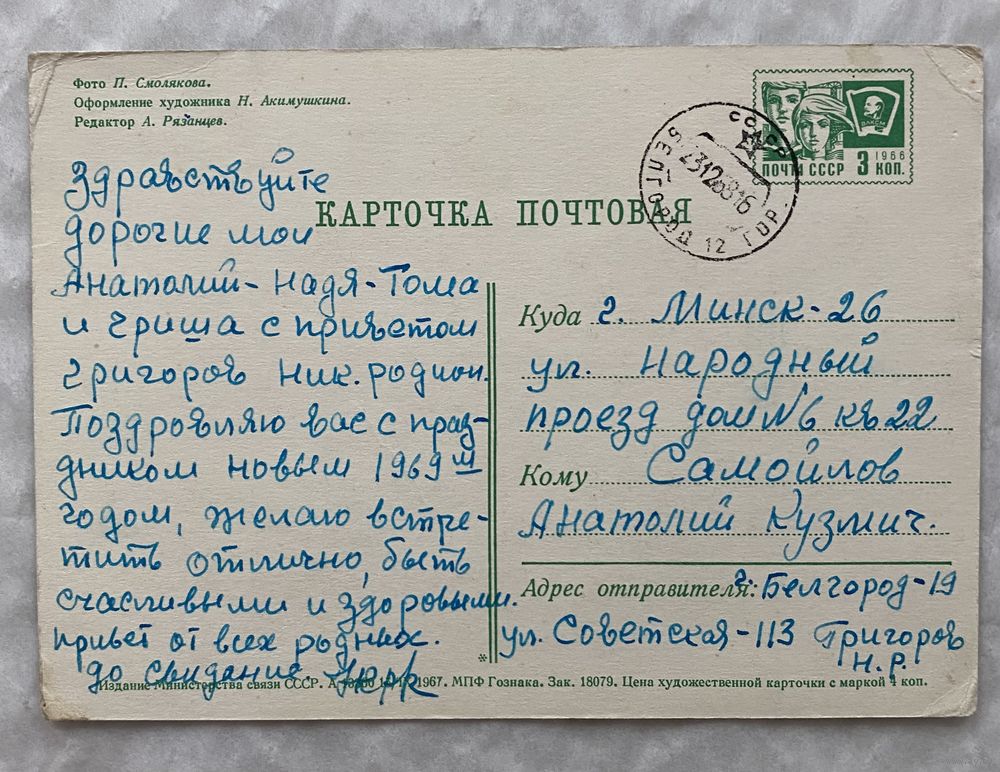 Фото П. Смолякова.
Оформление художника Н. Акимушкина.
Редактор А. Рязанцев.
ВЛКСМ
1966
ПОЧТА СССР 3 КОП.
СССР
БЕЛГОРОД 12 ГОР.
23126816
КАРТОЧКА ПОЧТОВАЯ
Здравствуйте
дорогие мои
Анатолий-Надя-Тома
и Гриша с приветом
Григоров Ник. родион.
Поздровляю вас с праз-
дником новым 1969 м
годом, желаю встре-
тить отлично, быть
счасливыми и здоровыми.
привет от всех родных.
до свидание
Куда г. Минск-26
ул. Народный
проезд дом №6 кв 22
Кому Самойлов
Анатолий Кузмич.
Адрес отправителя: г. Белгород-19
ул. Советская-113 Григоров
Н.Р.
*
Издание Министерства связи СССР. 1967. МПФ Гознака. Зак. 18079. Цена художественной карточки с маркой 4 коп.